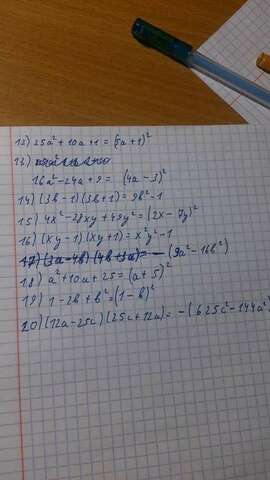 12) 25a² + 10a + 1 = (5a + 1)²
13)
16a² - 24a + 9 = (4a - 3)²
14) (3b - 1)(3b + 1) = 9b² - 1
15) 4x² - 28xy + 49y² = (2x - 7y)²
16) (xy - 1)(xy + 1) = x²y² - 1
17) (3a - 4b)(4b + 3a) = - (9a² - 16b²)
18) a² + 10a + 25 = (a + 5)²
19) 1 - 2b + b² = (1 - b)²
20) (12a - 25c)(25c + 12a) = - (625c² - 144a²